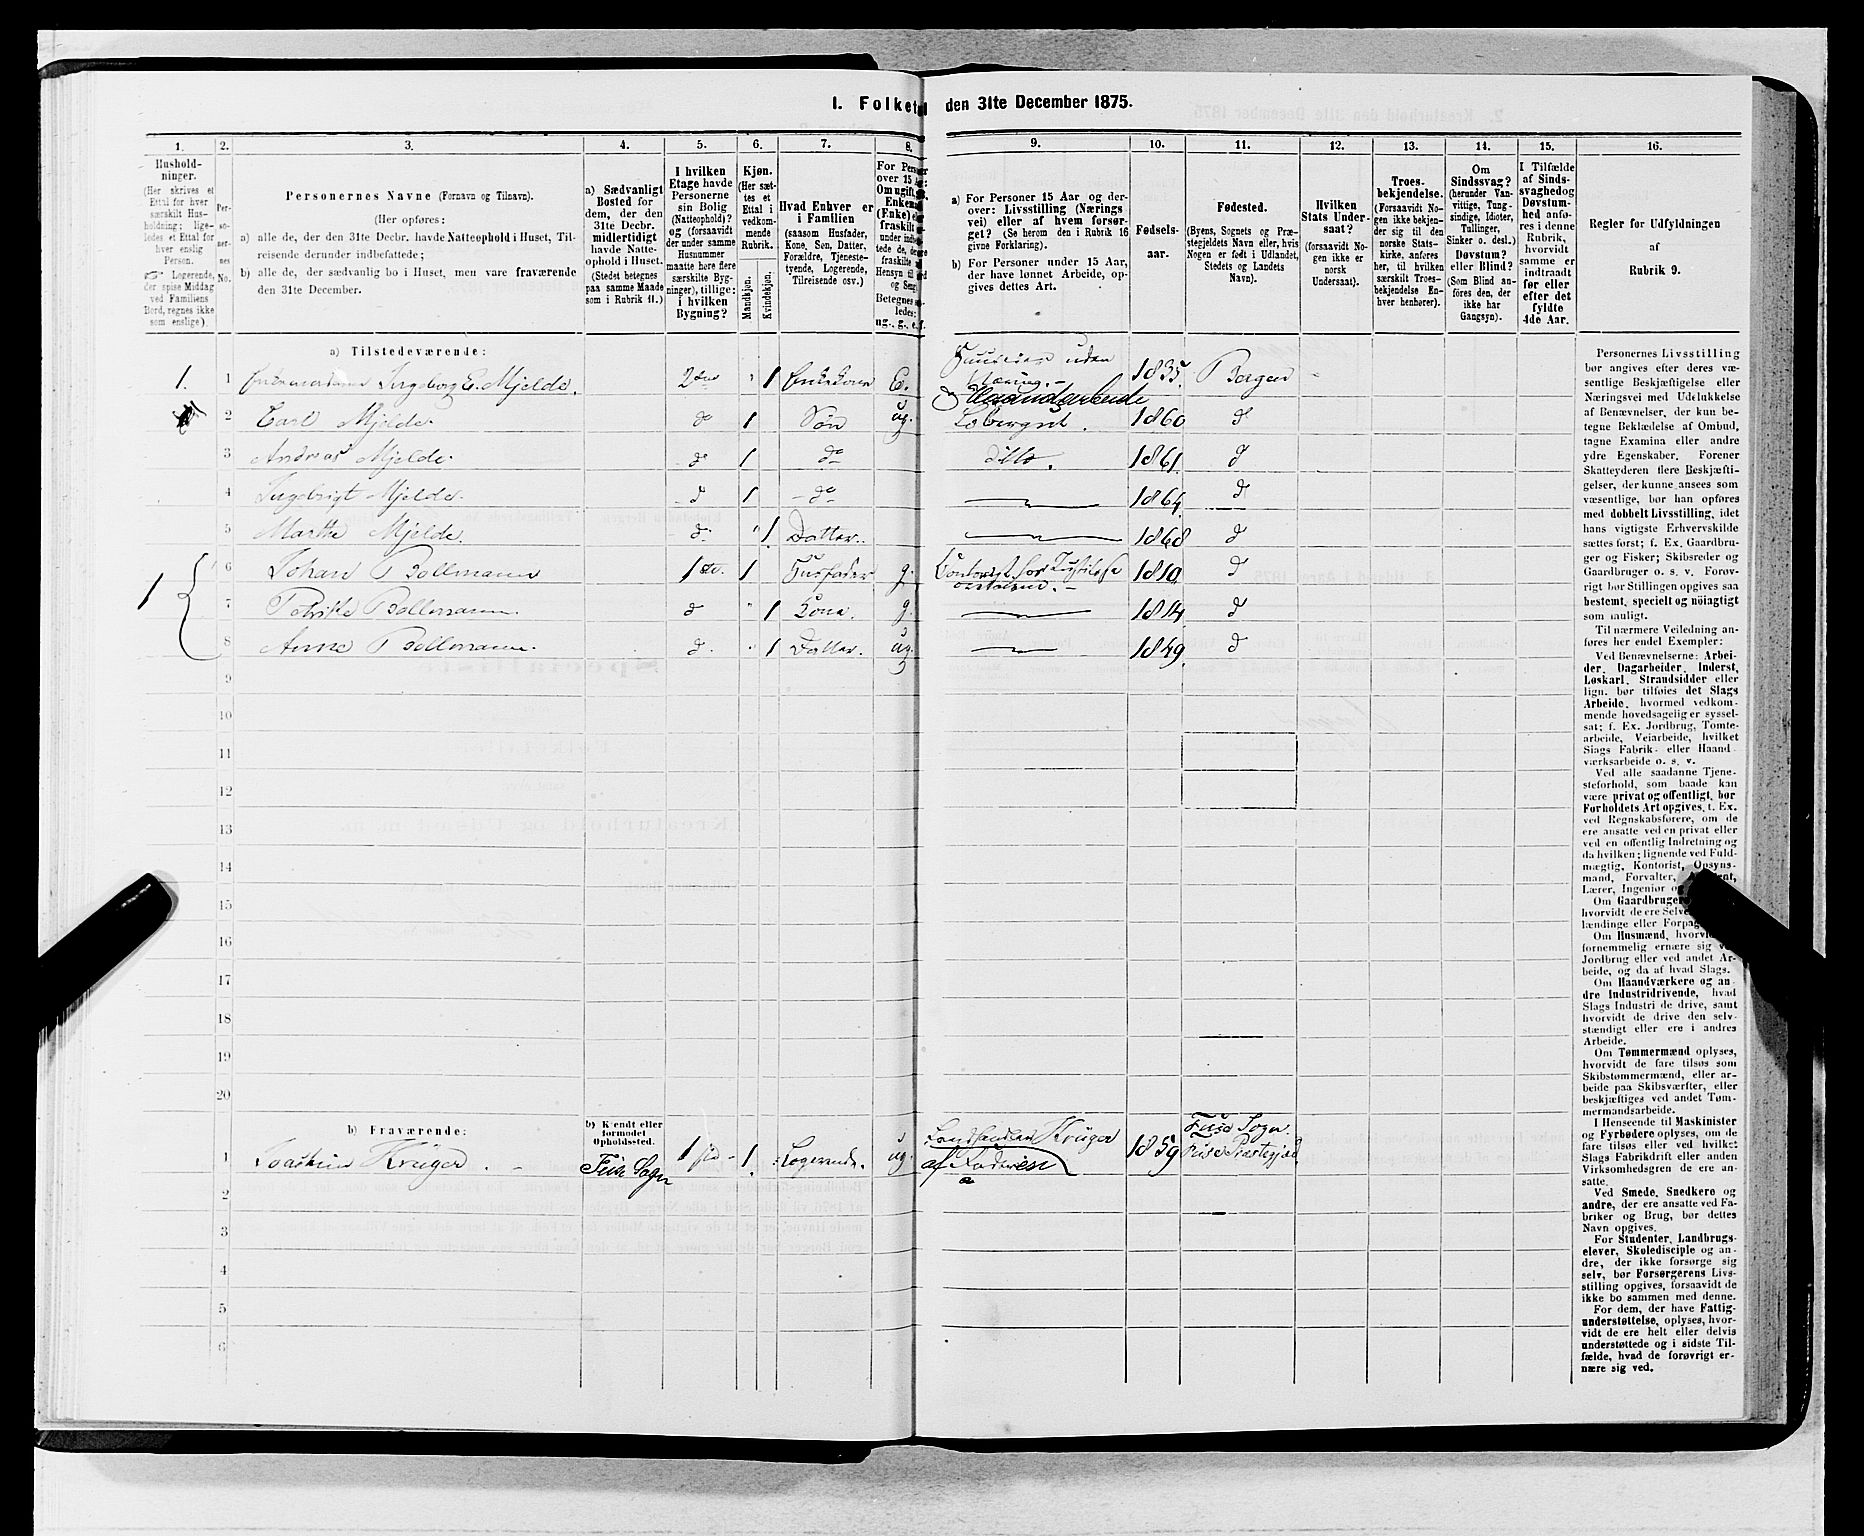 1. Folketal den 31te December 1875.
1.
2.
3.
4.
5.
6.
7.
8.
9.
10.
11.
12.
13.
14.
15.
16.
Hushold-
ninger.
(Her skrives et
Ettal for hver
særskilt Hus-
holdning; lige-
ledes et Ettal for
hver enslig
Person.
Logerende,
der spise Middag
ved Familiens
Bord, regnes ikke
som enslige).
Per-
so-
ner-
nes
No.
Personernes Navne (Fornavn og Tilnavn).
(Her opføres:
a) alle de, der den 31te Decbr. havde Natteophold i Huset, Til-
reisende derunder indbefattede;
b) alle de, der sædvanlig bo i Huset, men vare fraværende
den 31te December.
a) Sædvanligt
Bosted for
dem, der den
31te Decbr.
midlertidigt
havde Natte-
ophold i Huset.
(Stedet betegnes
paa samme Maade
som i Rubrik 11.)
I hvilken
Etage havde
Personerne
sin Bolig
(Natteophold)?
og (forsaavidt
der under samme
Husnummer
maatte høre flere
særskilte Byg-
ninger), tillige:
i hvilken
Bygning?
Kjøn.
(Her sæt-
tes et
Ettal i
vedkom-
mende
Rubrik.
Mandkjøn.
Kvindekjøn.
Hvad Enhver er
i Familien
(saasom Husfader,
Kone, Søn, Datter,
Forældre, Tjeneste-
tyende, Logerende,
Tilreisende osv.)
For Pers
over 15 A
Om ugift,
Enkem
(Enke) el
fraskilt
under indb
tede de,
fraskilte
Hensyn til
og Seng.
Betegnes
ledes:
ug., g., e. f.
a) For Personer 15 Aar og der-
over: Livsstilling (Nærings
vei) eller af hvem forsør-
get? (Se herom den i Rubrik 16
givne Forklaring).
b) For Personer under 15 Aar,
der have lønnet Arbeide, op-
gives dettes Art.
Fødsels-
aar.
Fødested.
(Byens, Sognets og Præ-
stegjeldets Navn eller, hvis
Nogen er født i Udlandet,
Stedets og Landets
Navn).
Hvilken
Stats Under-
saat?
(forsaavidt No-
gen ikke er
norsk
Undersaat).
Troes-
bekjendelse.
(Forsaavidt No-
gen ikke bekjen-
der sig til den
norske Stats-
kirke, anføres
her, til hvilken
særskilt Troes-
bekjendelse En-
hver henhører).
Om
Sindssvag?
(herunder Van-
vittige, Tung-
sindige, Idioter,
Tullinger,
Sinker o. desl.)
Døvstum?
eller Blind?
(Som Blind an-
føres den, der
ikke har
Gangsyn).
I Tilfælde
af Sinds-
svaghed og
Døvstum-
hed anfø-
res i denne
Rubrik,
hvorvidt
samme er
indtraadt
før eller
efter det
fyldte
4de Aar.
Regler for Udfyldningen
af
Rubrik 9.
a) Tilstedeværende:
1. 1 Ingeborg E. Mjelde. 2den 1 Enkekone E. uden Næring. - Haandarbeide 1835. Bergen
2 Carl Mjelde. do 1 Søn ug. 1860 d
3 Andreas Mjelde. do 1 do ditto. 1861. d
4 Ingebrigt Mjelde. d 1 do 1864. d
5 Marthe Mjelde. d. " 1. Datter. 1868 d
1 6 Johan Bollmann 1ste. 1 Husfader g. 1810 d
7 Bollmann. d " 1 Kona. g. 1814. d
8 Anne Bollmann. d. " 1 Datter. ug. 1849. d
9
10
11
12
13
14
15
16
17
18
19
20
b) Fraværende:
b) Kjendt eller
formodet
Opholdssted.
1 Krüger. Fuse Sogn 1 1. Logerende. ug. Landhandler Krüger af Faderen 1859 Fuse Sogn. Fuse Præstegjæld
2
3
4
5
6
Personernes Livsstilling
bør angives efter deres væ-
sentlige Beskjæftigelse eller
Næringsvei med Udelukkelse
af Benævnelser, der kun be-
tegne Beklædelse af Ombud,
tagne Examina eller andre
ydre Egenskaber. Forener
Skatteyderen flere Beskjæfti-
gelser, der kunne ansees som
væsentlige, bør han opføres
med dobbelt Livsstilling, idet
hans vigtigste Erhvervskilde
sættes først; f. Ex. Gaardbru-
ger og Fisker; Skibsreder og
Gaardbruger o. s. v. Forøv-
rigt bør Stillingen opgives saa
bestemt, specielt og nøiagtigt
som muligt.
Til nærmere Veiledning an-
føres her endel Exempler:
Ved Benævnelserne: Arbei-
der, Dagarbeider, Inderst,
Løskarl, Strandsidder eller
lign. bør tilføies det Slags
Arbeide, hvormed vedkom-
mende hovedsagelig er syssel-
sat; f. Ex. Jordbrug, Tomte-
arbeide, Veiarbeide, hvilket
Slags Fabrik- eller Haand-
værksarbeide o. s. v.
Ved alle saadanne Tjene-
steforhold, som baade kan
være privat og offentligt, bør
Forholdets Art opgives, t. Ex.
ved Regnskabsførere, om de
ere ansatte ved en privat eller
ved en offentlig Indretning og
da hvilken; lignende ved Fuld-
mægtig, Kontorist, Opsyns-
mand, Forvalter,
Lærer, Ingeniør
Om Gaardbruger
hvorvidt de ere Selv
lændinge eller Forpag
Om Husmænd, hvorv
fornemmelig ernære sig
Jordbrug eller ved andet Ar-
beide, og da af hvad Slags.
Om Haandværkere og an-
dre Industridrivende, hvad
Slags Industri de drive, samt
hvorvidt de drive den selv-
stændigt eller ere i andres
Arbeide.
Om Tømmermænd oplyses,
hvorvidt de fare tilsøs som
Skibstømmermænd, eller ar-
beide paa Skibsværfter, eller
beskjæftiges ved andet Tøm-
mermandsarbeide.
I Henseende til Maskinister
og Fyrbødere oplyses, om de
fare tilsøs eller ved hvilket
Slags Fabrikdrift eller anden
Virksomhedsgren de ere an-
satte.
Ved Smede, Snedkere og
andre, der ere ansatte ved Fa-
briker og Brug, bør dettes
Navn opgives.
For Studenter, Landbrugs-
elever, Skoledisciple og an-
dre, der ikke forsørge sig
selv, bør Forsørgerens Livs-
stilling opgives, forsaavidt de
ikke bo sammen med denne.
For dem, der have Fattig-
understøttelse, oplyses, hvor-
vidt de ere helt eller delvis
understøttede og i sidste Til-
fælde, hvad de forøvrigt er-
nære sig ved.